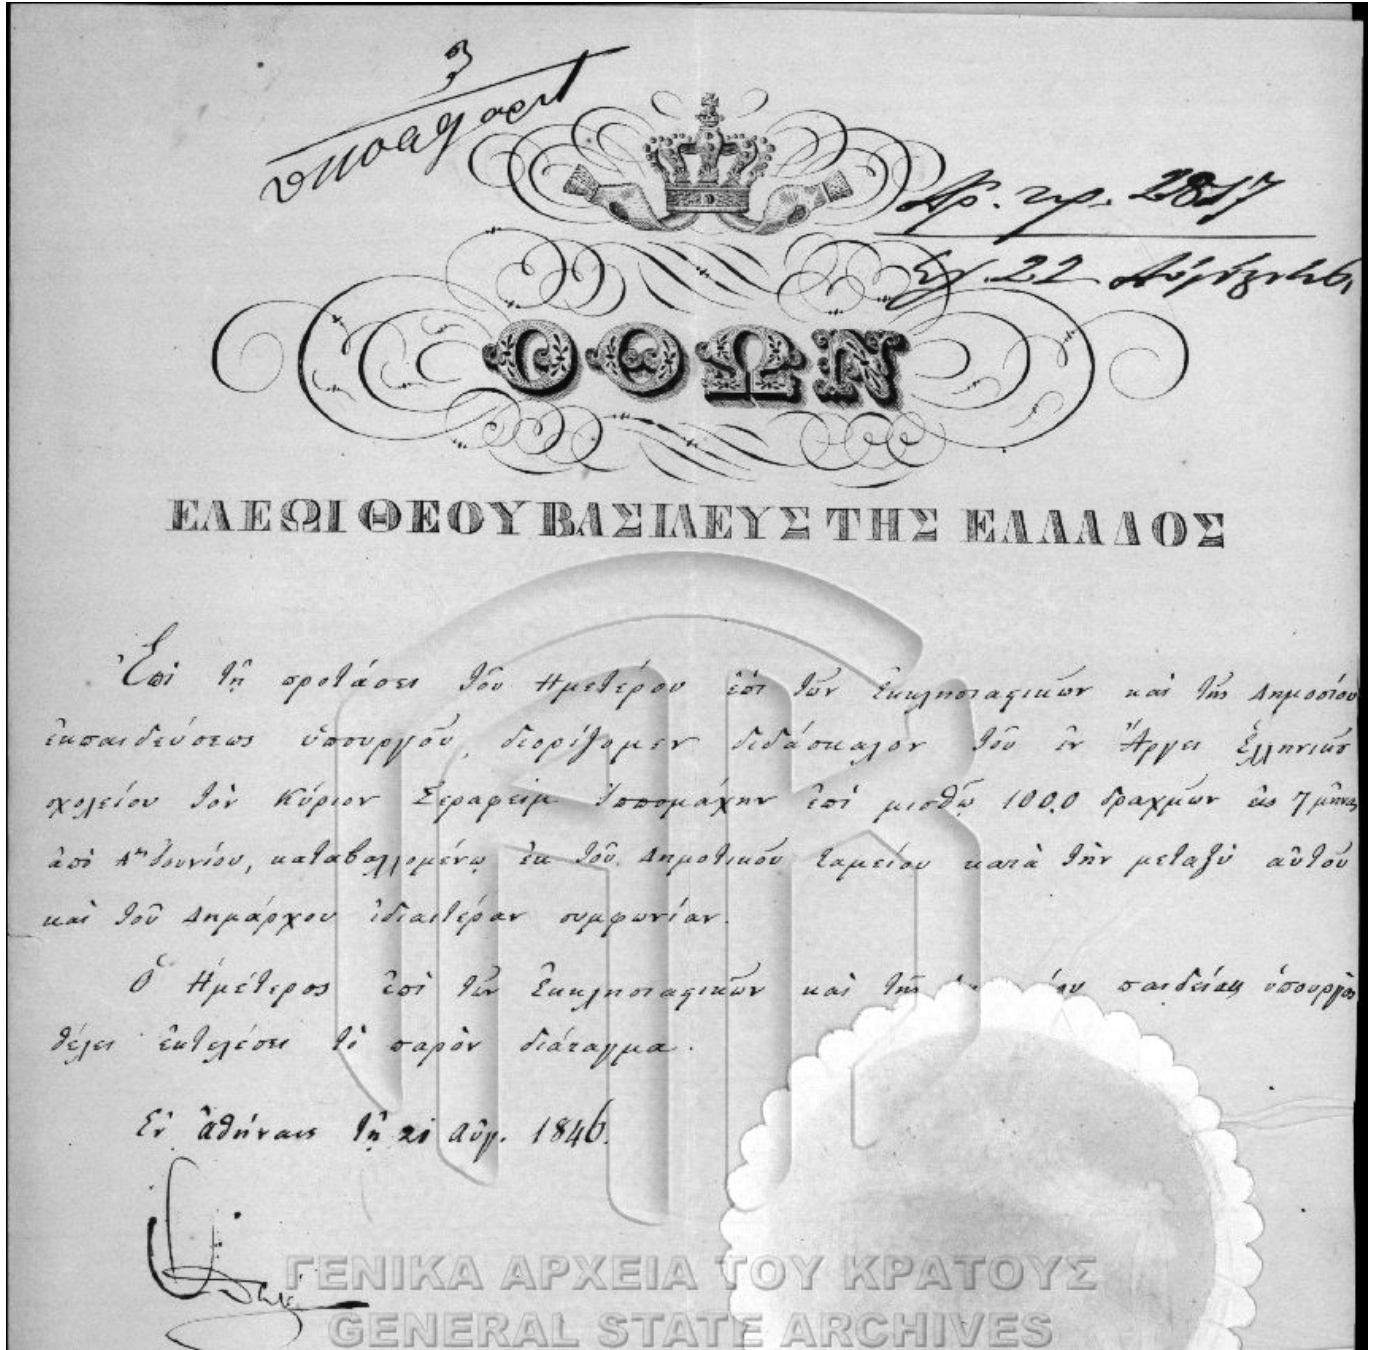 3
Ἀρ. πρ. 2817
22
ΟΘΩΝ
ΕΛΕΩΙ ΘΕΟΥ ΒΑΣΙΛΕΥΣ ΤΗΣ ΕΛΛΑΔΟΣ
Ἐπὶ τῇ προτάσει τοῦ Ἡμετέρου ἐπὶ τῶν Ἐκκλησιαστικῶν καὶ τῆς Δημοσίου
ἐκπαιδεύσεως ὑπουργοῦ, διορίζομεν διδάσκαλον τοῦ ἐν Ἄργει Ἑλληνικοῦ
σχολείου τὸν Κύριον Σεραφεὶμ ἐπὶ μισθῷ 100,0 δραχμῶν εἰς 7 μῆνας
ἀπὸ Αης Ἰουνίου, καταβαλλομένῳ ἐκ τοῦ Δημοτικοῦ ταμείου κατὰ τὴν μεταξὺ αὐτοῦ
καὶ τοῦ Δημάρχου ἰδιαιτέραν συμφωνίαν.
Ὁ Ἡμέτερος ἐπὶ τῶν Ἐκκλησιαστικῶν καὶ τῆς παιδείας ὑπουργὸς
θέλει ἐκτελέσει τὸ παρὸν διάταγμα.
Ἐν Ἀθήναις τῇ 21 Αὐγ. 1846.
ΓΕΝΙΚΑ ΑΡΧΕΙΑ ΤΟΥ ΚΡΑΤΟΥΣ
GENERAL STATE ARCHIVES